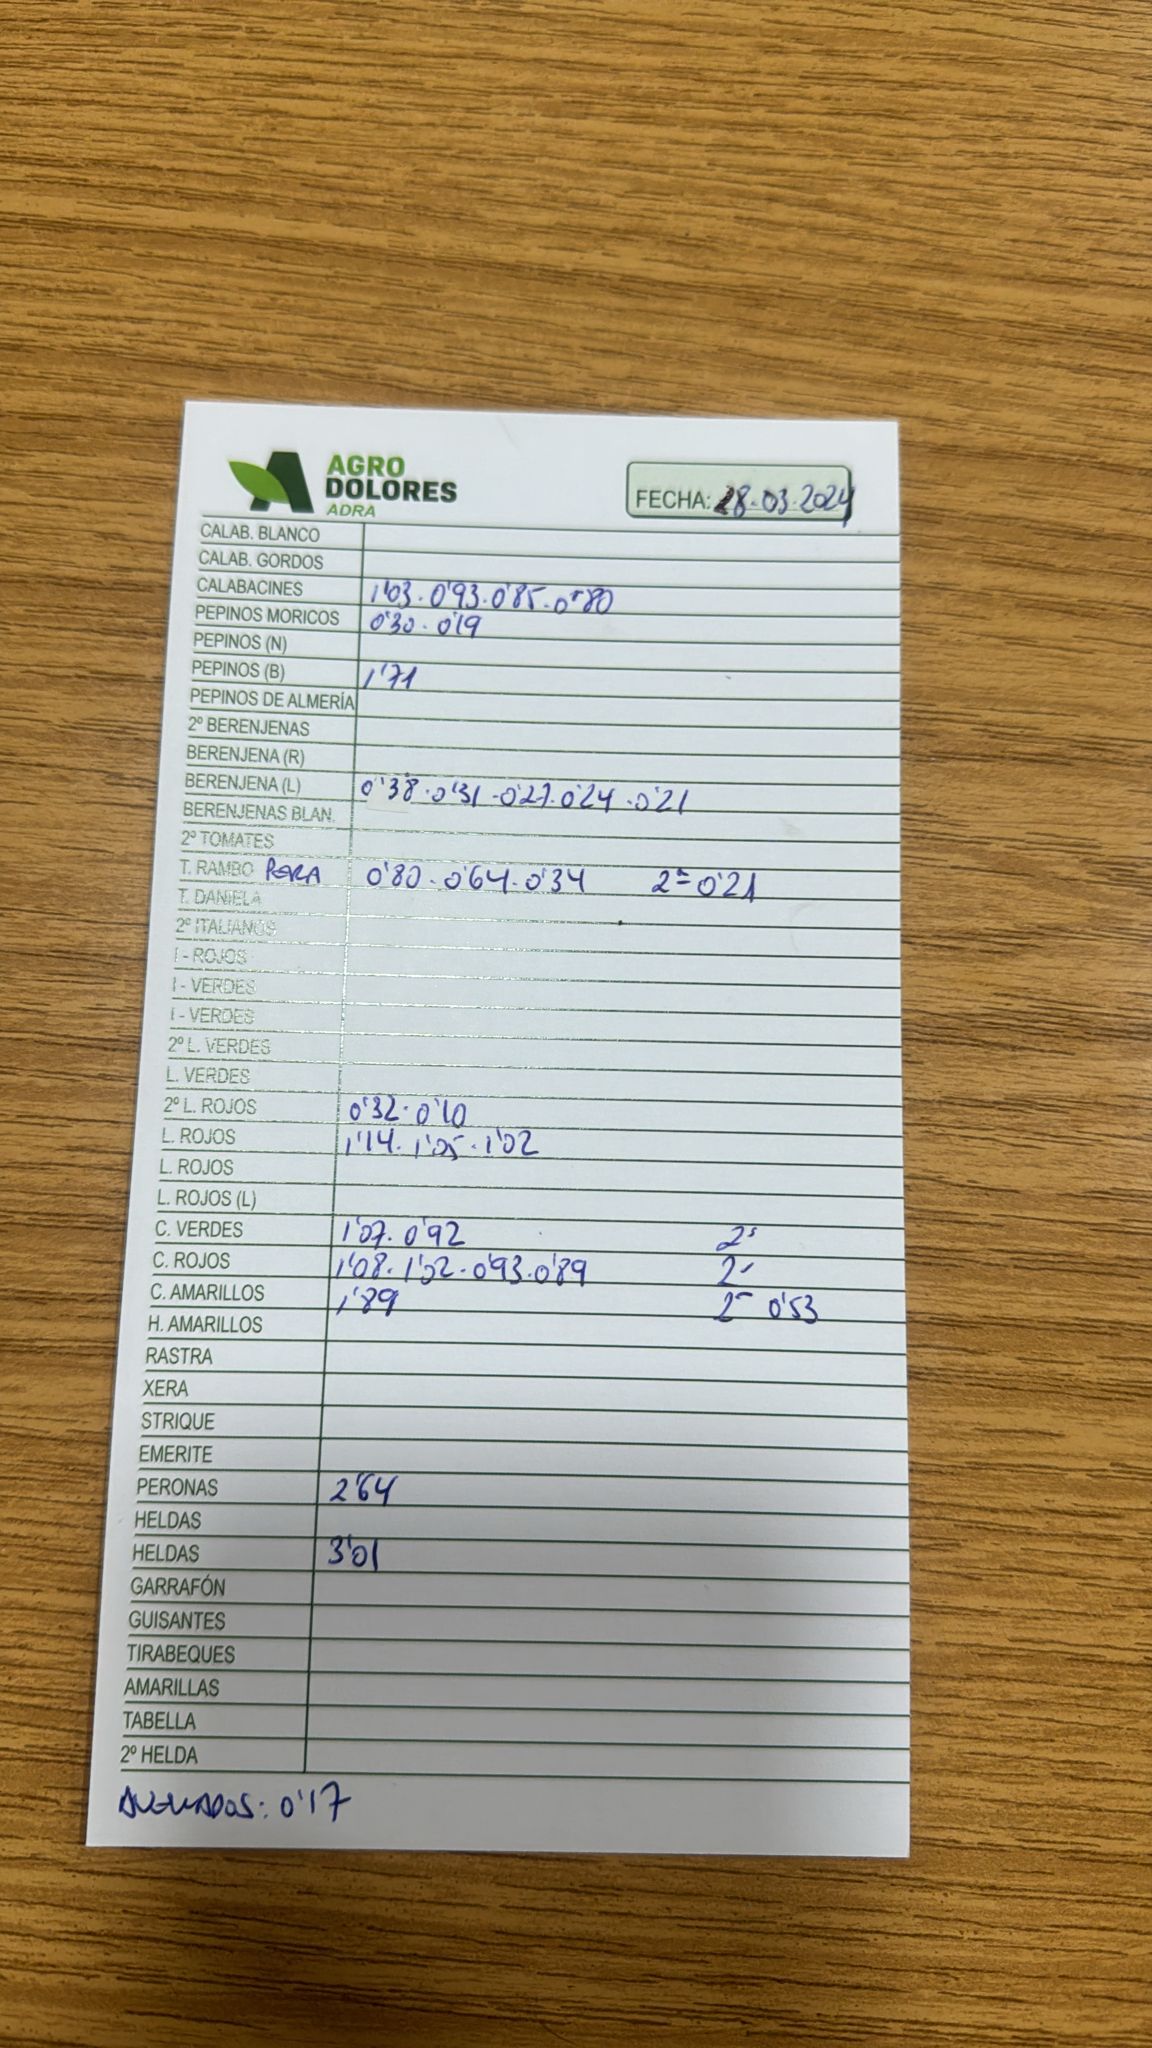 AGRO
DOLORES
ADRA
FECHA: 28-03-2024
CALAB. BLANCO
CALAB. GORDOS
CALABACINES 1'03-0'93-0'85-0'80
PEPINOS MORICOS 0'30-0'19
PEPINOS (N)
PEPINOS (B) 1'71
PEPINOS DE ALMERÍA
2º BERENJENAS
BERENJENA (R)
BERENJENA (L) 0'38-0'31-0'27-0'24-0'21
BERENJENAS BLAN.
2º TOMATES
T. RAMBO PERA 0'80-0'64-0'34 2ª 0'21
T. DANIELA
2º ITALIANOS
I - ROJOS
I - VERDES
I - VERDES
2º L. VERDES
L. VERDES
2º L. ROJOS 0'32-0'10
L. ROJOS 1'14-1'05-1'02
L. ROJOS
L. ROJOS (L)
C. VERDES 1'07-0'92 2ª
C. ROJOS 1'08-1'02-0'93-0'89 2ª
C. AMARILLOS 1'89 2ª 0'53
H. AMARILLOS
RASTRA
XERA
STRIQUE
EMERITE
PERONAS 2'64
HELDAS
HELDAS 3'01
GARRAFÓN
GUISANTES
TIRABEQUES
AMARILLAS
TABELLA
2º HELDA
0'17